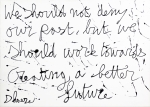 We should not deny
our past, but we
should work towards
creating a better
future